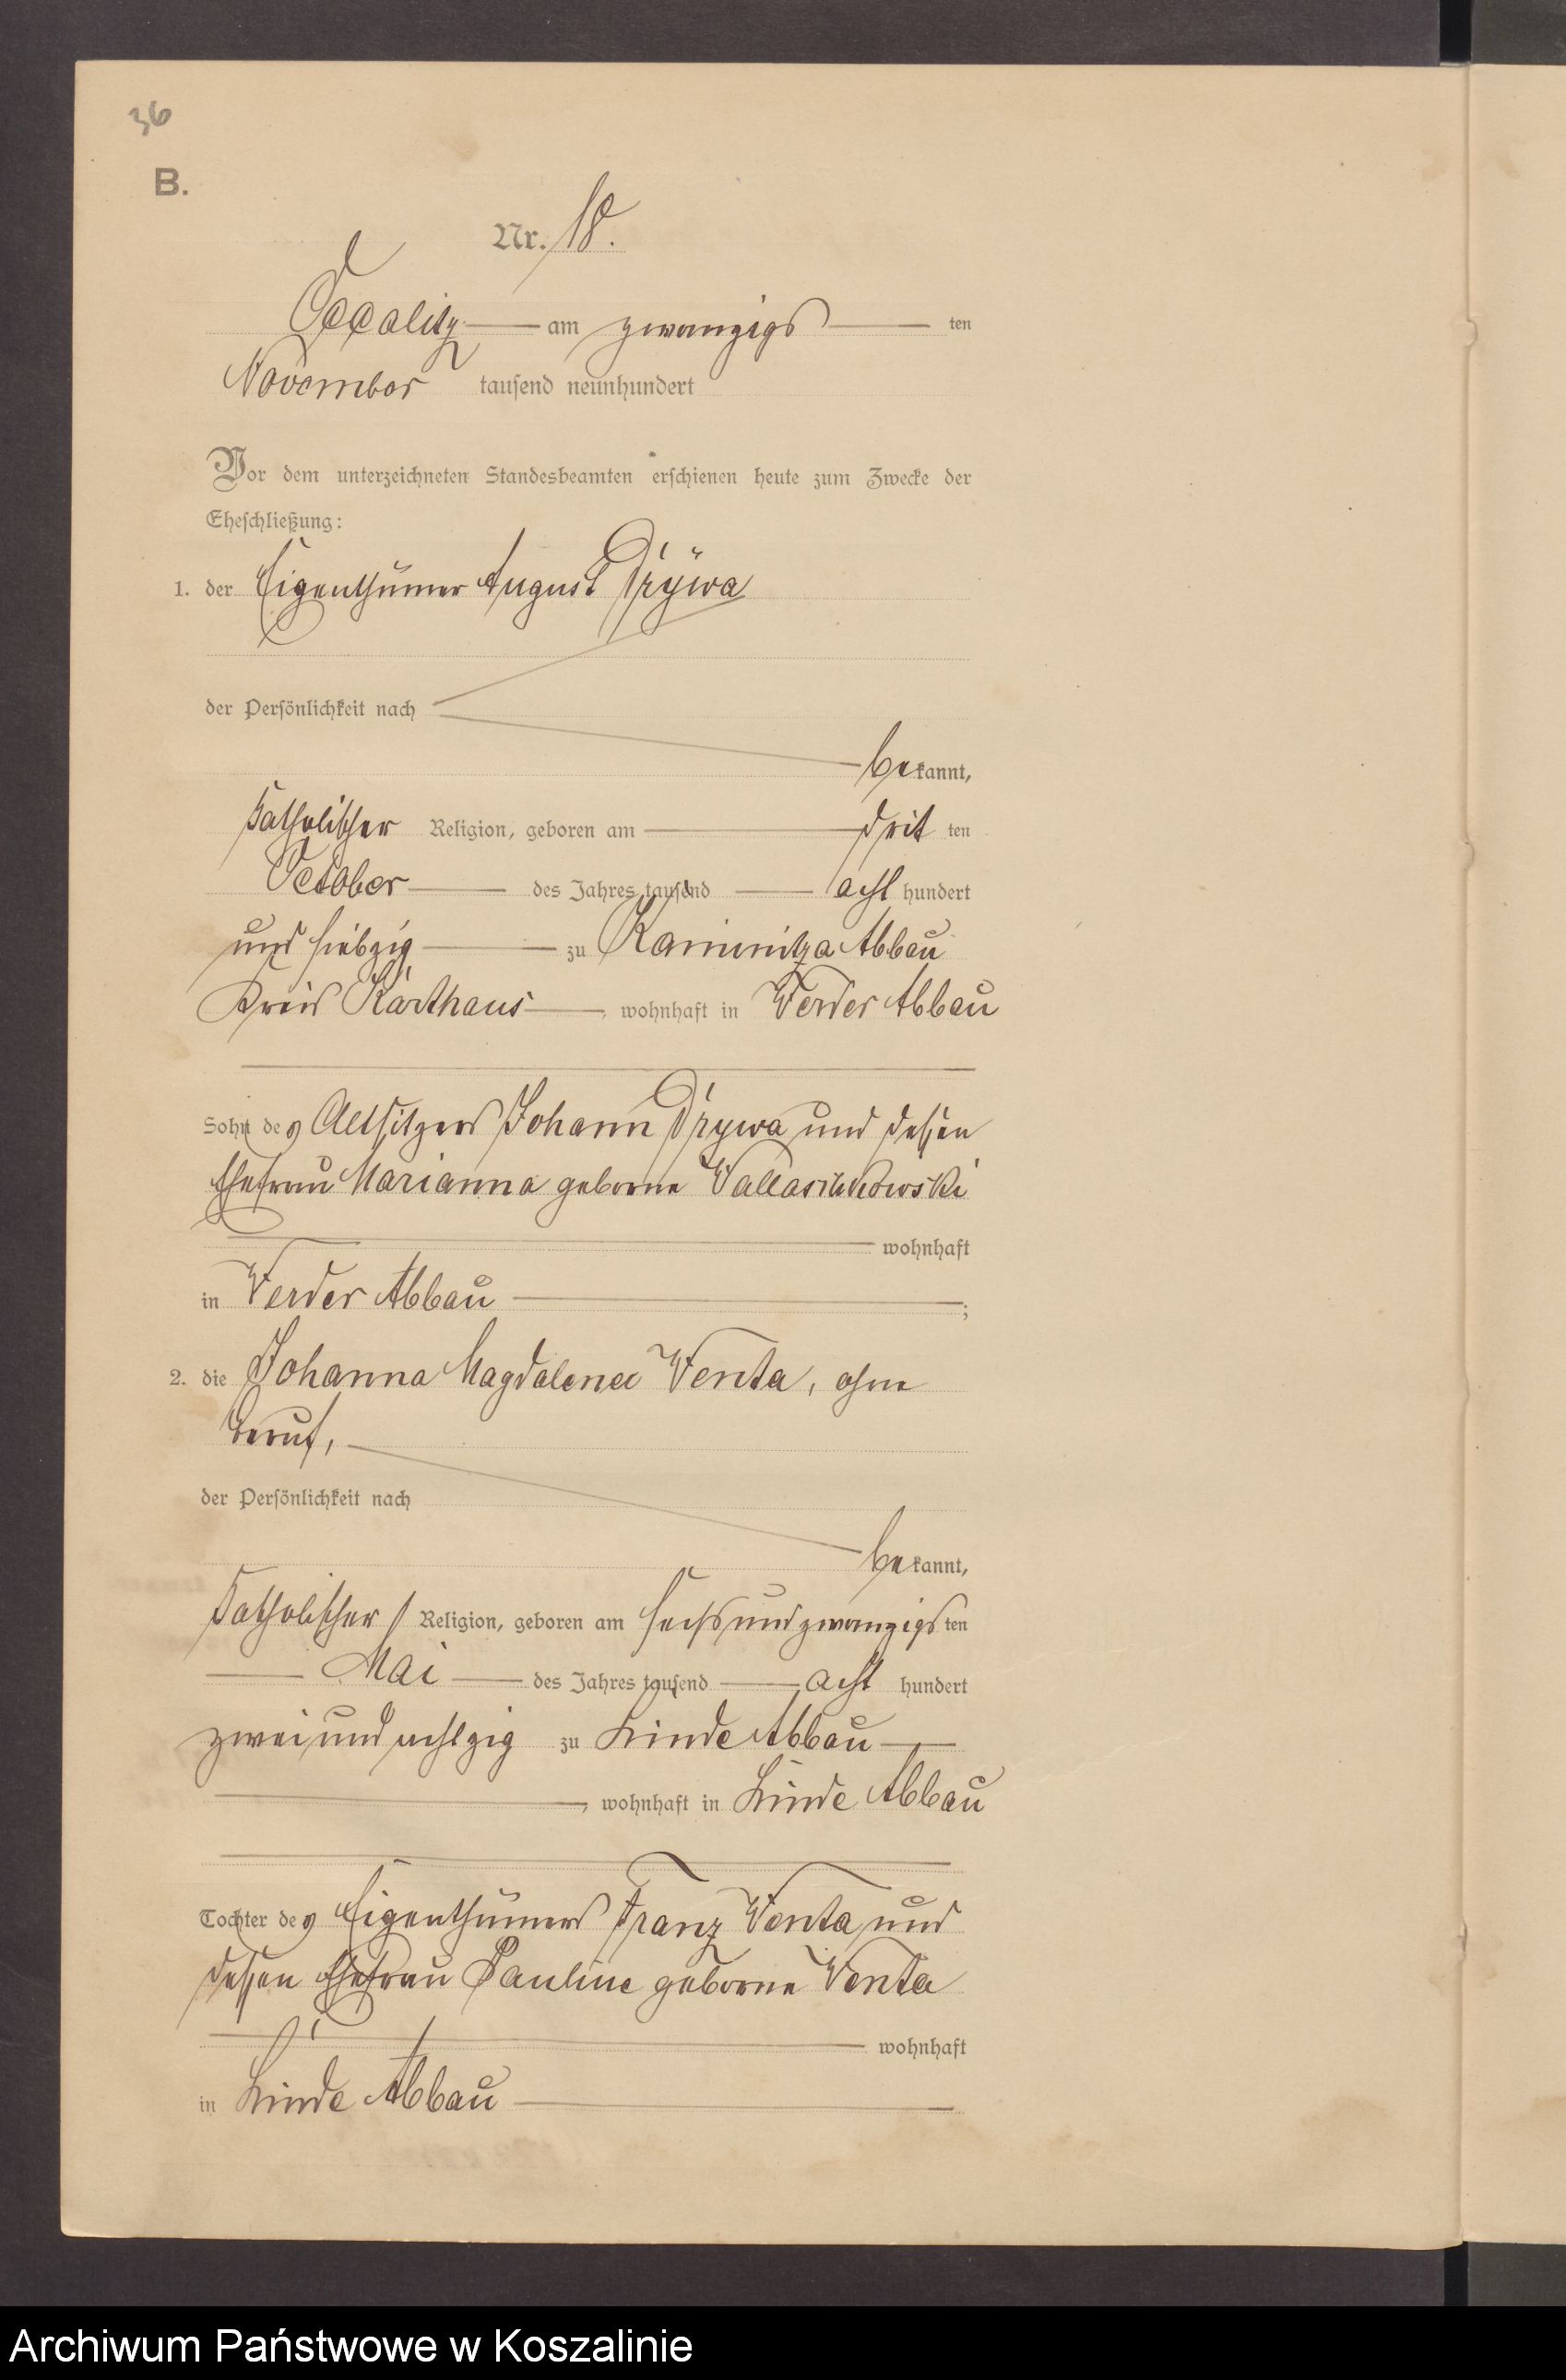 36
B.
Nr. 18.
Occalitz am zwanzigs ten
November tausend neunhundert
Vor dem unterzeichneten Standesbeamten erschienen heute zum Zwecke der
Eheschließung:
1. der Eigenthümer August Drÿwa
der Persönlichkeit nach
bekannt,
katholischer Religion, geboren am drit ten
October des Jahres tausend acht hundert
und siebzig zu Kaminitza Abbau
Kreis Karthaus, wohnhaft in Werder Abbau
Sohn des Altsitzers Johann Drywa und dessen
Ehefrau Marianna geborne
wohnhaft
in Werder Abbau;
2. die Johanna Magdalena Wenta, ohne
Beruf,
der Persönlichkeit nach
bekannt,
katholischer Religion, geboren am sechsundzwanzigs ten
Mai des Jahres tausend acht hundert
zweiundachtzig zu Linde Abbau
, wohnhaft in Linde Abbau
Tochter des Eigenthümers Franz Wenta und
dessen Ehefrau Pauline geborne Wenta
wohnhaft
in Linde Abbau
Archiwum Państwowe w Koszalinie